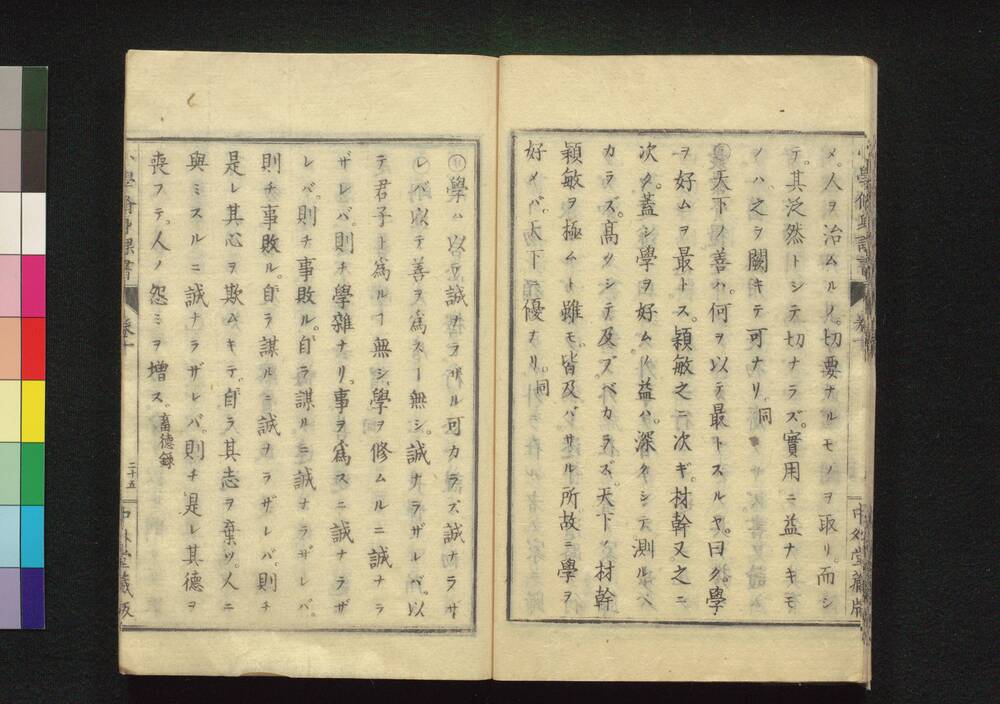 メ。人ヲ治ムルノ。切要ナルモノヲ取リ。而シ
テ。其泛然トシテ切ナラズ。實用ニ益ナキモ
ノハ。之ヲ闕キテ可ナリ。同
天下ノ善ハ。何ヲ以テ最トスルヤ。曰ク。學
ヲ好ムヲ最トス。穎敏之ニ次ギ。材幹又之ニ
次グ。蓋シ學ヲ好ムノ益ハ。深クシテ測ルベ
カラズ。高ツシテ及ブベカラズ。天下ノ材幹
穎敏ヲ極ムト雖モ。皆及バザル所故ニ學ヲ
好メバ。天下ニ優ナリ。同
學ハ以テ誠ナラザル可カラズ誠ナラザ
レバ。以テ善ヲ爲スヿ無シ。誠ナラザレバ。以
テ君子ト爲ルヿ無シ。學ヲ修ムルニ誠ナラ
ザレバ。則チ學雜ナリ。事ヲ爲スニ誠ナラザ
レバ。則チ事敗ル。自ラ謀ルニ誠ナラザレバ。
則チ事敗ル。自ラ謀ルニ誠ヲラザレバ。則チ
是レ其心ヲ欺ムキテ。自ラ其志ヲ棄ツ。人ニ
與ミスルニ誠ナラザレバ。則チ是レ其德ヲ
喪フテ。人ノ怨ミヲ増ス。畜德錄
小學修身課書
卷一
二十五
中外堂藏版